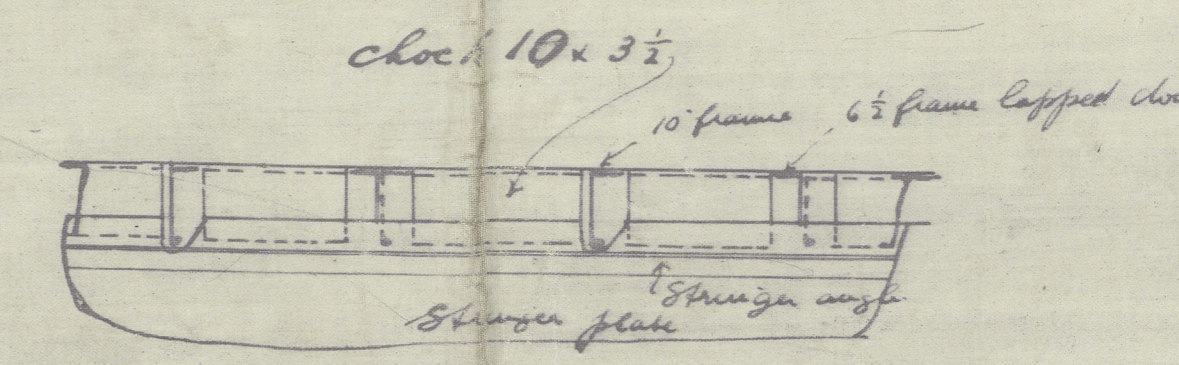 chock 10 x 3 ½
10" frame
6 ½ frame lapped
Stringer angle
Stringer plate